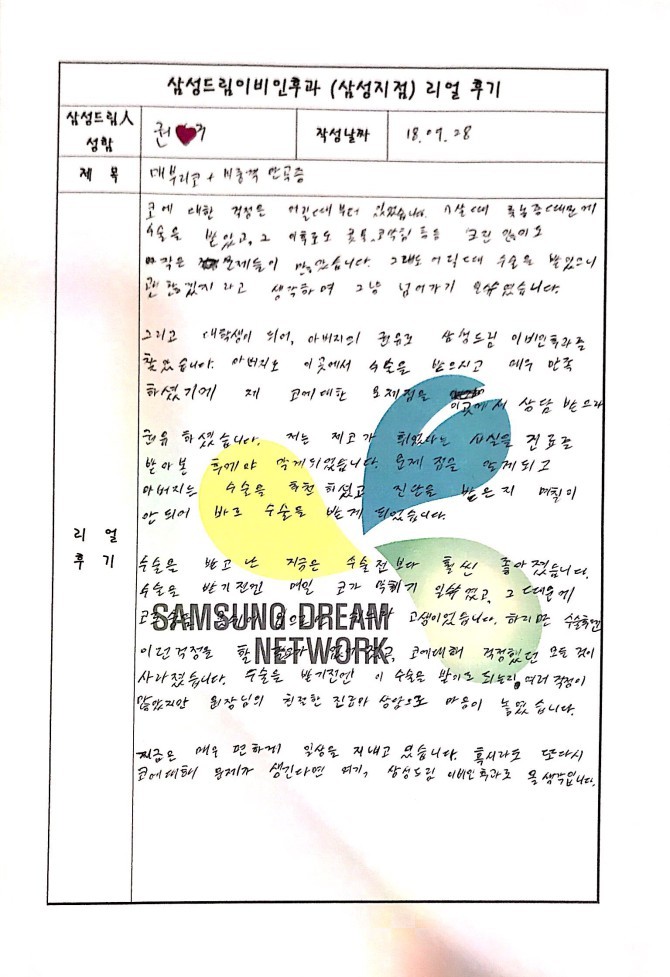 삼성드림이비인후과 (삼성지점) 리얼 후기
삼성드림人
성함
권 ♥
작성날짜
18. 09. 28
제 목
매부리코 + 비중격 만곡증
리 얼
후 기
코에 대한 걱정은 어릴때부터 있었습니다. 축농증때문에
수술을 받았고, 그 이후로도 콧물, 코막힘 등등
문제들이 많았습니다. 그래도 어릴때 수술을 받았으니
괜찮겠지 라고 생각하며 그냥 넘어가기 일쑤였습니다.
그리고 대학생이 되어, 아버지의 권유로 삼성드림 이비인후과를
찾았습니다. 아버지도 이곳에서 수술을 받으시고 매우 만족
하셨기에 제 코에대한 문제점을 이곳에서 상담 받으라
권유 하셨습니다. 저는 제 코가 휘었다는 사실을 진료를
받아본 후에야 알게되었습니다. 문제점을 알게되고
아버지는 수술을 추천 하셨고 진단을 받은지 며칠이
안 되어 바로 수술을 받게 되었습니다.
수술을 받고 난 지금은 수술전보다 훨씬 좋아졌습니다.
수술을 받기전엔 매일 코가 막히기 일쑤였고, 그 때문에
고생이었습니다. 하지만 수술후엔
이런걱정을 할 코에대해 걱정했던 모든 것이
사라졌습니다. 수술을 받기전엔 이 수술을 받아도 되는지, 여러 걱정이
많았지만 원장님의 친절한 진료와 상담으로 마음이 놓였습니다.
지금은 매우 편하게 일상을 지내고 있습니다. 혹시라도 또다시
코에대해 문제가 생긴다면 여기, 삼성드림 이비인후과로 올 생각입니다.
SAMSUNG DREAM
NETWORK